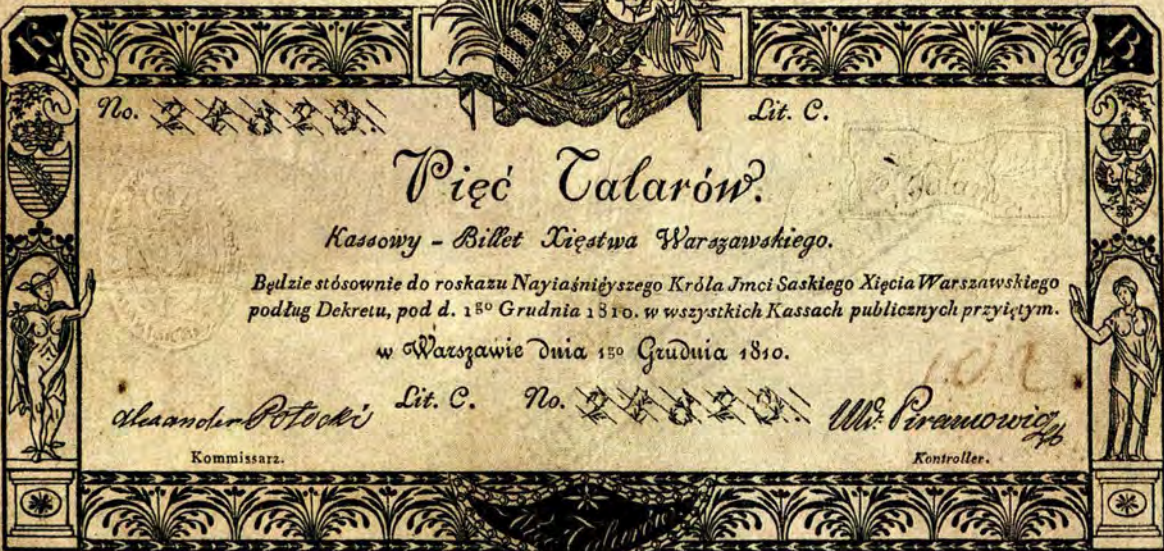 K. B
No. 24323. Lit. C.
Pięć Talarów.
Kassowy - Billet Xięstwa Warszawskiego.
Będzie stósownie do roskazu Nayiaśnièyszego Króla Jmci Saskiego Xięcia Warszawskiego
podług Dekretu, pod d. 1go Grudnia 1810. w wszystkich Kassach publicznych przyiętym.
w Warszawie dnia 1go Grudnia 1810.
Lit. C. No. 24323.
Alexander Potocki
Kommissarz.
Piramowicz
Kontroller.